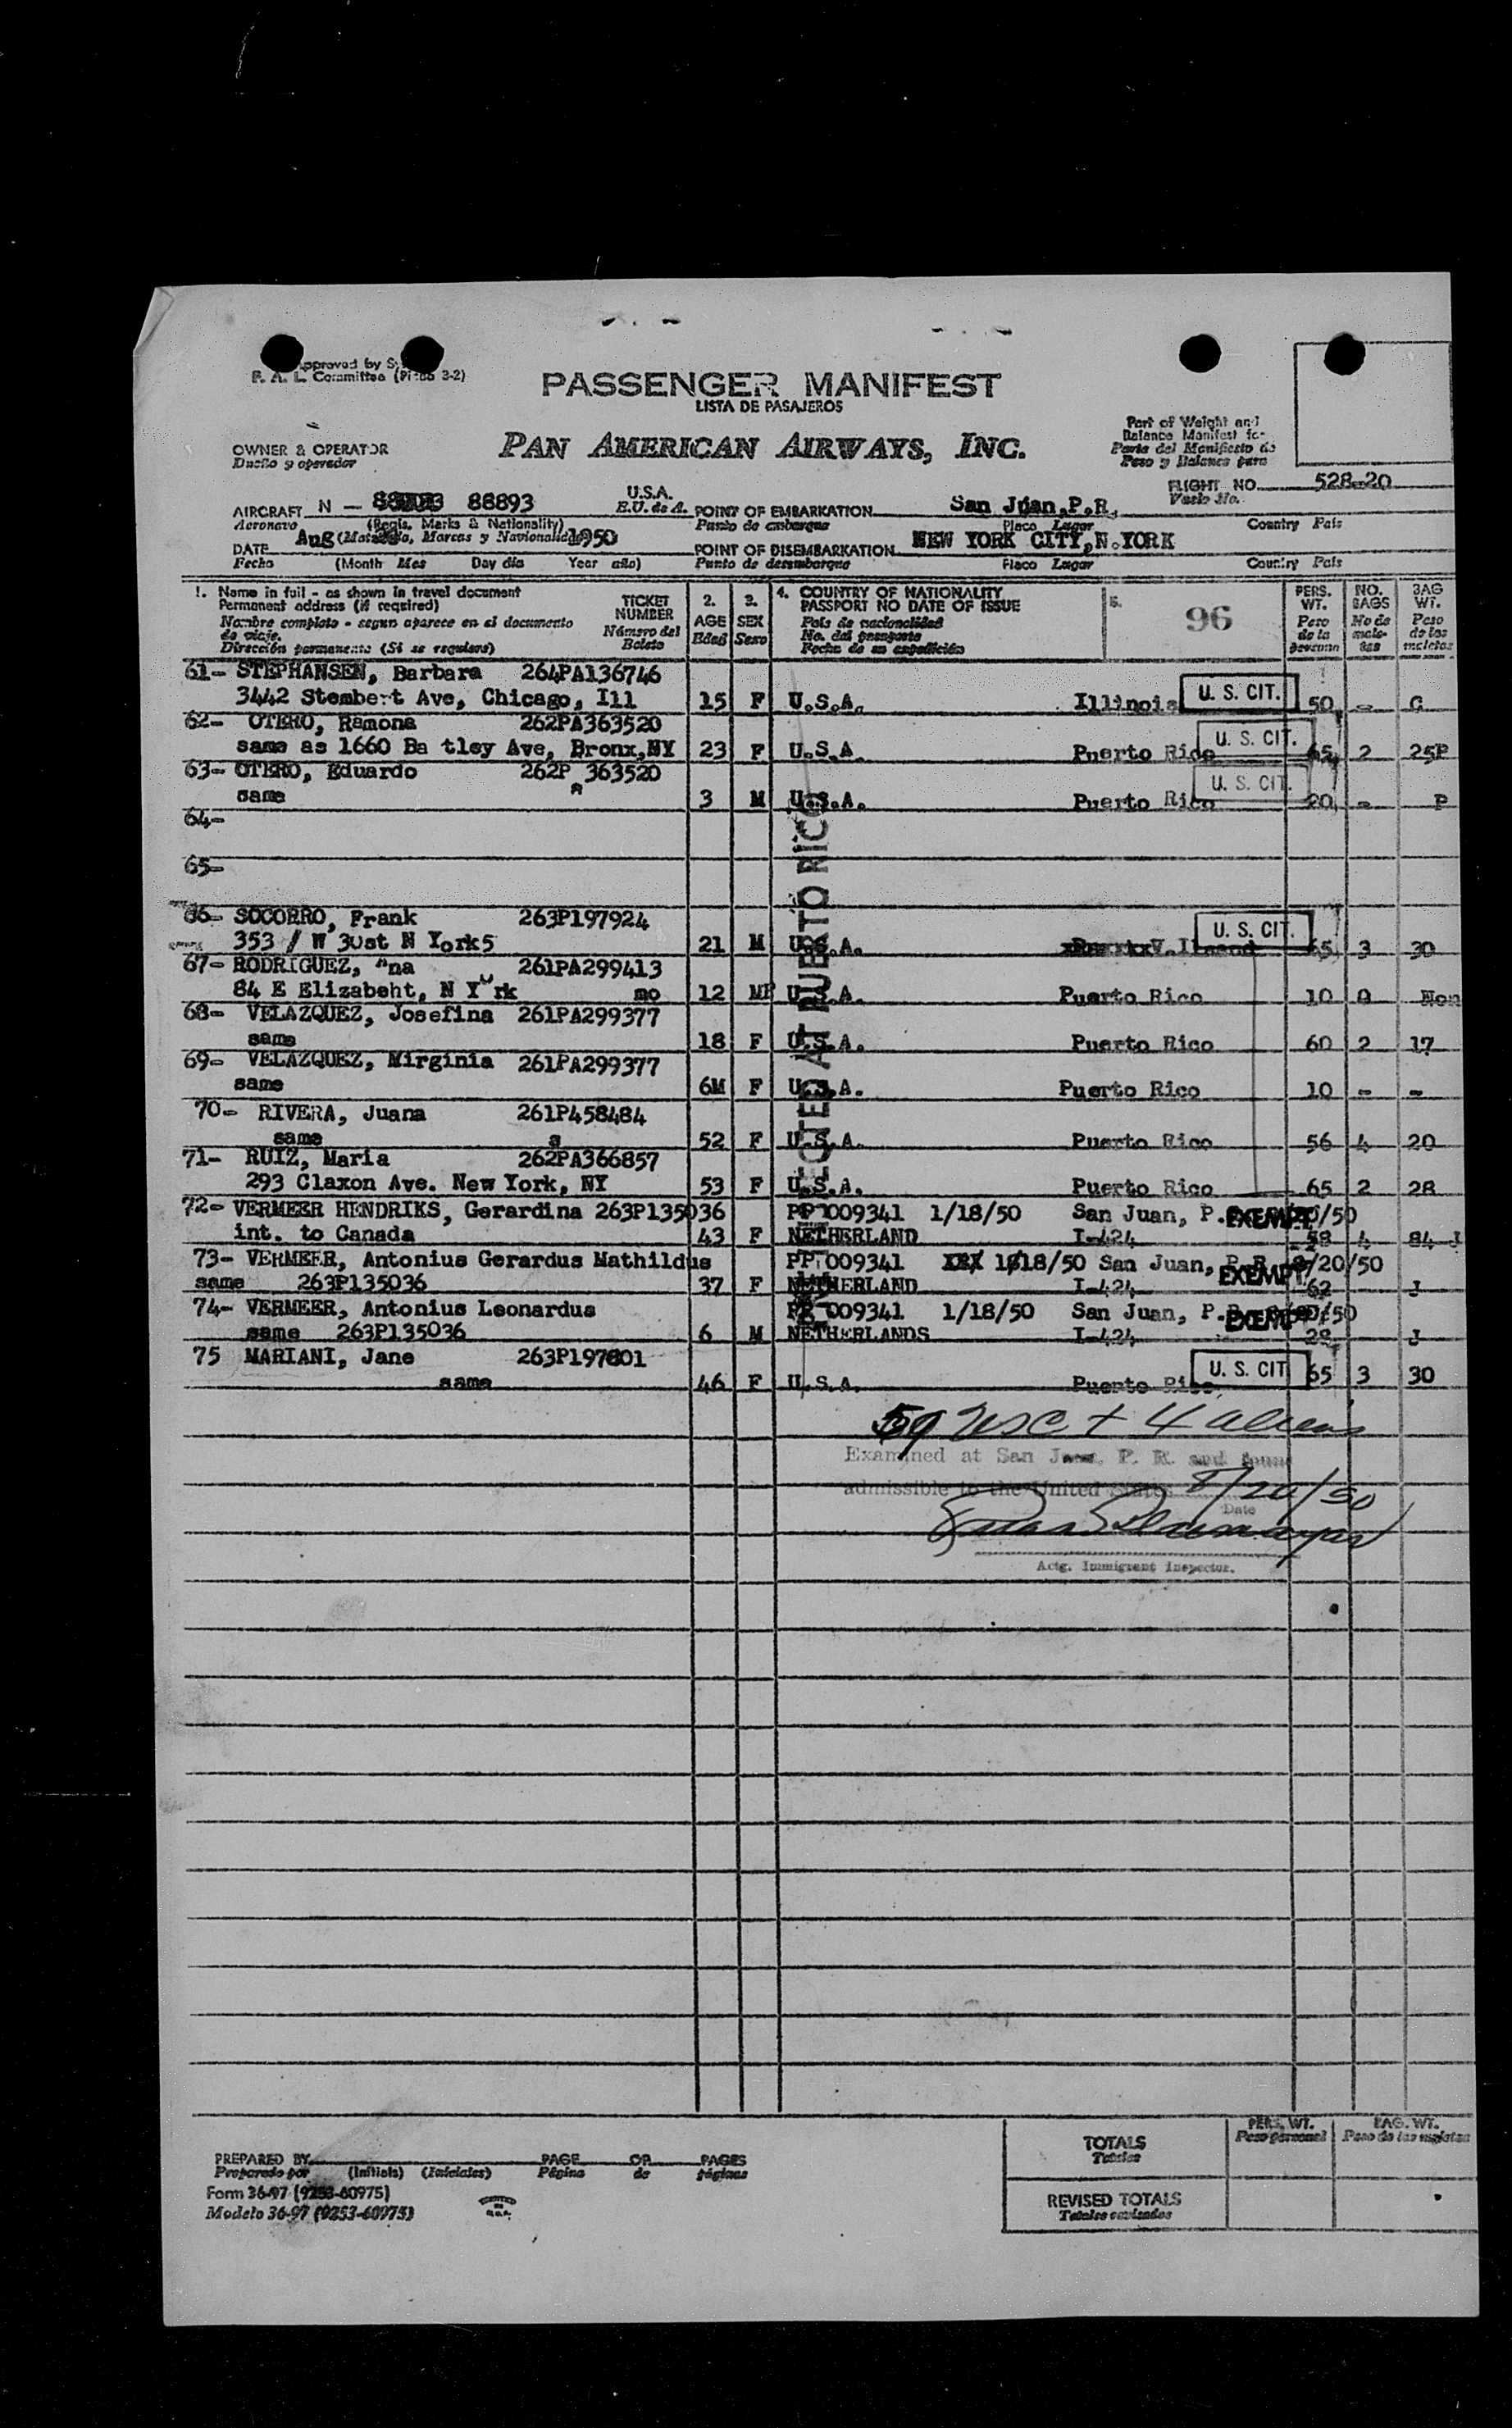 Approved by
F. A. L. Committee
PASSENGER MANIFEST
LISTA DE PASAJEROS
PAN AMERICAN AIRWAYS, INC.
OWNER & OPERATOR
Dueño y operador
Part of Weight and
Balance Manifest for
Parte del Manifiesto de
Peso y Balance para
FLIGHT NO. 528-20
Vuelo No.
AIRCRAFT N - 88893 U.S.A.
Aeronave (Regis. Marks & Nationality) E.U. de A.
POINT OF EMBARKATION San Juan,P.R.
Punto de embarque Place Lugar Country País
DATE Aug 1950
Fecha (Month Mes Day día Year año)
POINT OF DISEMBARKATION NEW YORK CITY,N.YORK
Punto de desembarque Place Lugar Country País
1. Name in full - as shown in travel document
Permanent address (if required)
Nombre completo - segun aparece en el documento
de viaje.
Dirección permanente (Si se requiere)
TICKET NUMBER
Número del Boleto
2. AGE Edad
3. SEX Sexo
4. COUNTRY OF NATIONALITY
PASSPORT NO DATE OF ISSUE
País de nacionalidad
No. del pasaporte
Fecha de su expedición
5. 96
PERS. WT. Peso de la persona
NO. BAGS No de maletas
BAG WT. Peso de las maletas
61- STEPHANSEN, Barbara 264PA136746
3442 Stembert Ave, Chicago, Ill 15 F U.S.A. Illinois U. S. CIT. 50 - C
62- OTERO, Ramona 262PA363520
same as 1660 Ba tley Ave, Bronx,NY 23 F U.S.A. Puerto Rico U. S. CIT. 65 2 25P
63- OTERO, Eduardo 262PA363520
same 3 M U.S.A. Puerto Rico U. S. CIT. 20 - P
64-
65-
66- SOCORRO, Frank 263P197924
353 / W 30st N York5 21 M U.S.A. U. S. CIT. 65 3 30
67- RODRIGUEZ, "na 261PA299413
84 E Elizabeht, N York mo 12 U.S.A. Puerto Rico 10 0 Non
68- VELAZQUEZ, Josefina 261PA299377
same 18 F U.S.A. Puerto Rico 60 2 17
69- VELAZQUEZ, Mirginia 261PA299377
same 6M F U.S.A. Puerto Rico 10 - -
70- RIVERA, Juana 261P458484
same a 52 F U.S.A. Puerto Rico 56 4 20
71- RUIZ, Maria 262PA366857
293 Claxon Ave. New York, NY 53 F U.S.A. Puerto Rico 65 2 28
72- VERMEER HENDRIKS, Gerardina 263P135036 PP 009341 1/18/50 San Juan, P. EXEMPT /50
int. to Canada 43 F NETHERLAND I-424 58 4 84 J
73- VERMEER, Antonius Gerardus Mathildus PP 009341 1/18/50 San Juan, P.R. 8/20/50
same 263P135036 37 F NETHERLAND I-424 EXEMPT 62 J
74- VERMEER, Antonius Leonardus PP 009341 1/18/50 San Juan, P. EXEMPT /50
same 263P135036 6 M NETHERLANDS I-424 28 J
75 MARIANI, Jane 263P197801
same 46 F U.S.A. Puerto Rico U. S. CIT 65 3 30
AT PUERTO RICO
59 USC + 4 aliens
Examined at San Juan, P. R. and found
admissible to the United States 8/20/50
Date
Actg. Immigrant Inspector.
PREPARED BY PAGE OF PAGES
Preparado por (Initials) (Iniciales) Página de páginas
Form 36-97 (9253-60975)
Modelo 36-97 (9253-60975)
TOTALS
Totales
PERS. WT.
Peso personal
BAG. WT.
Peso de las maletas
REVISED TOTALS
Totales revisados